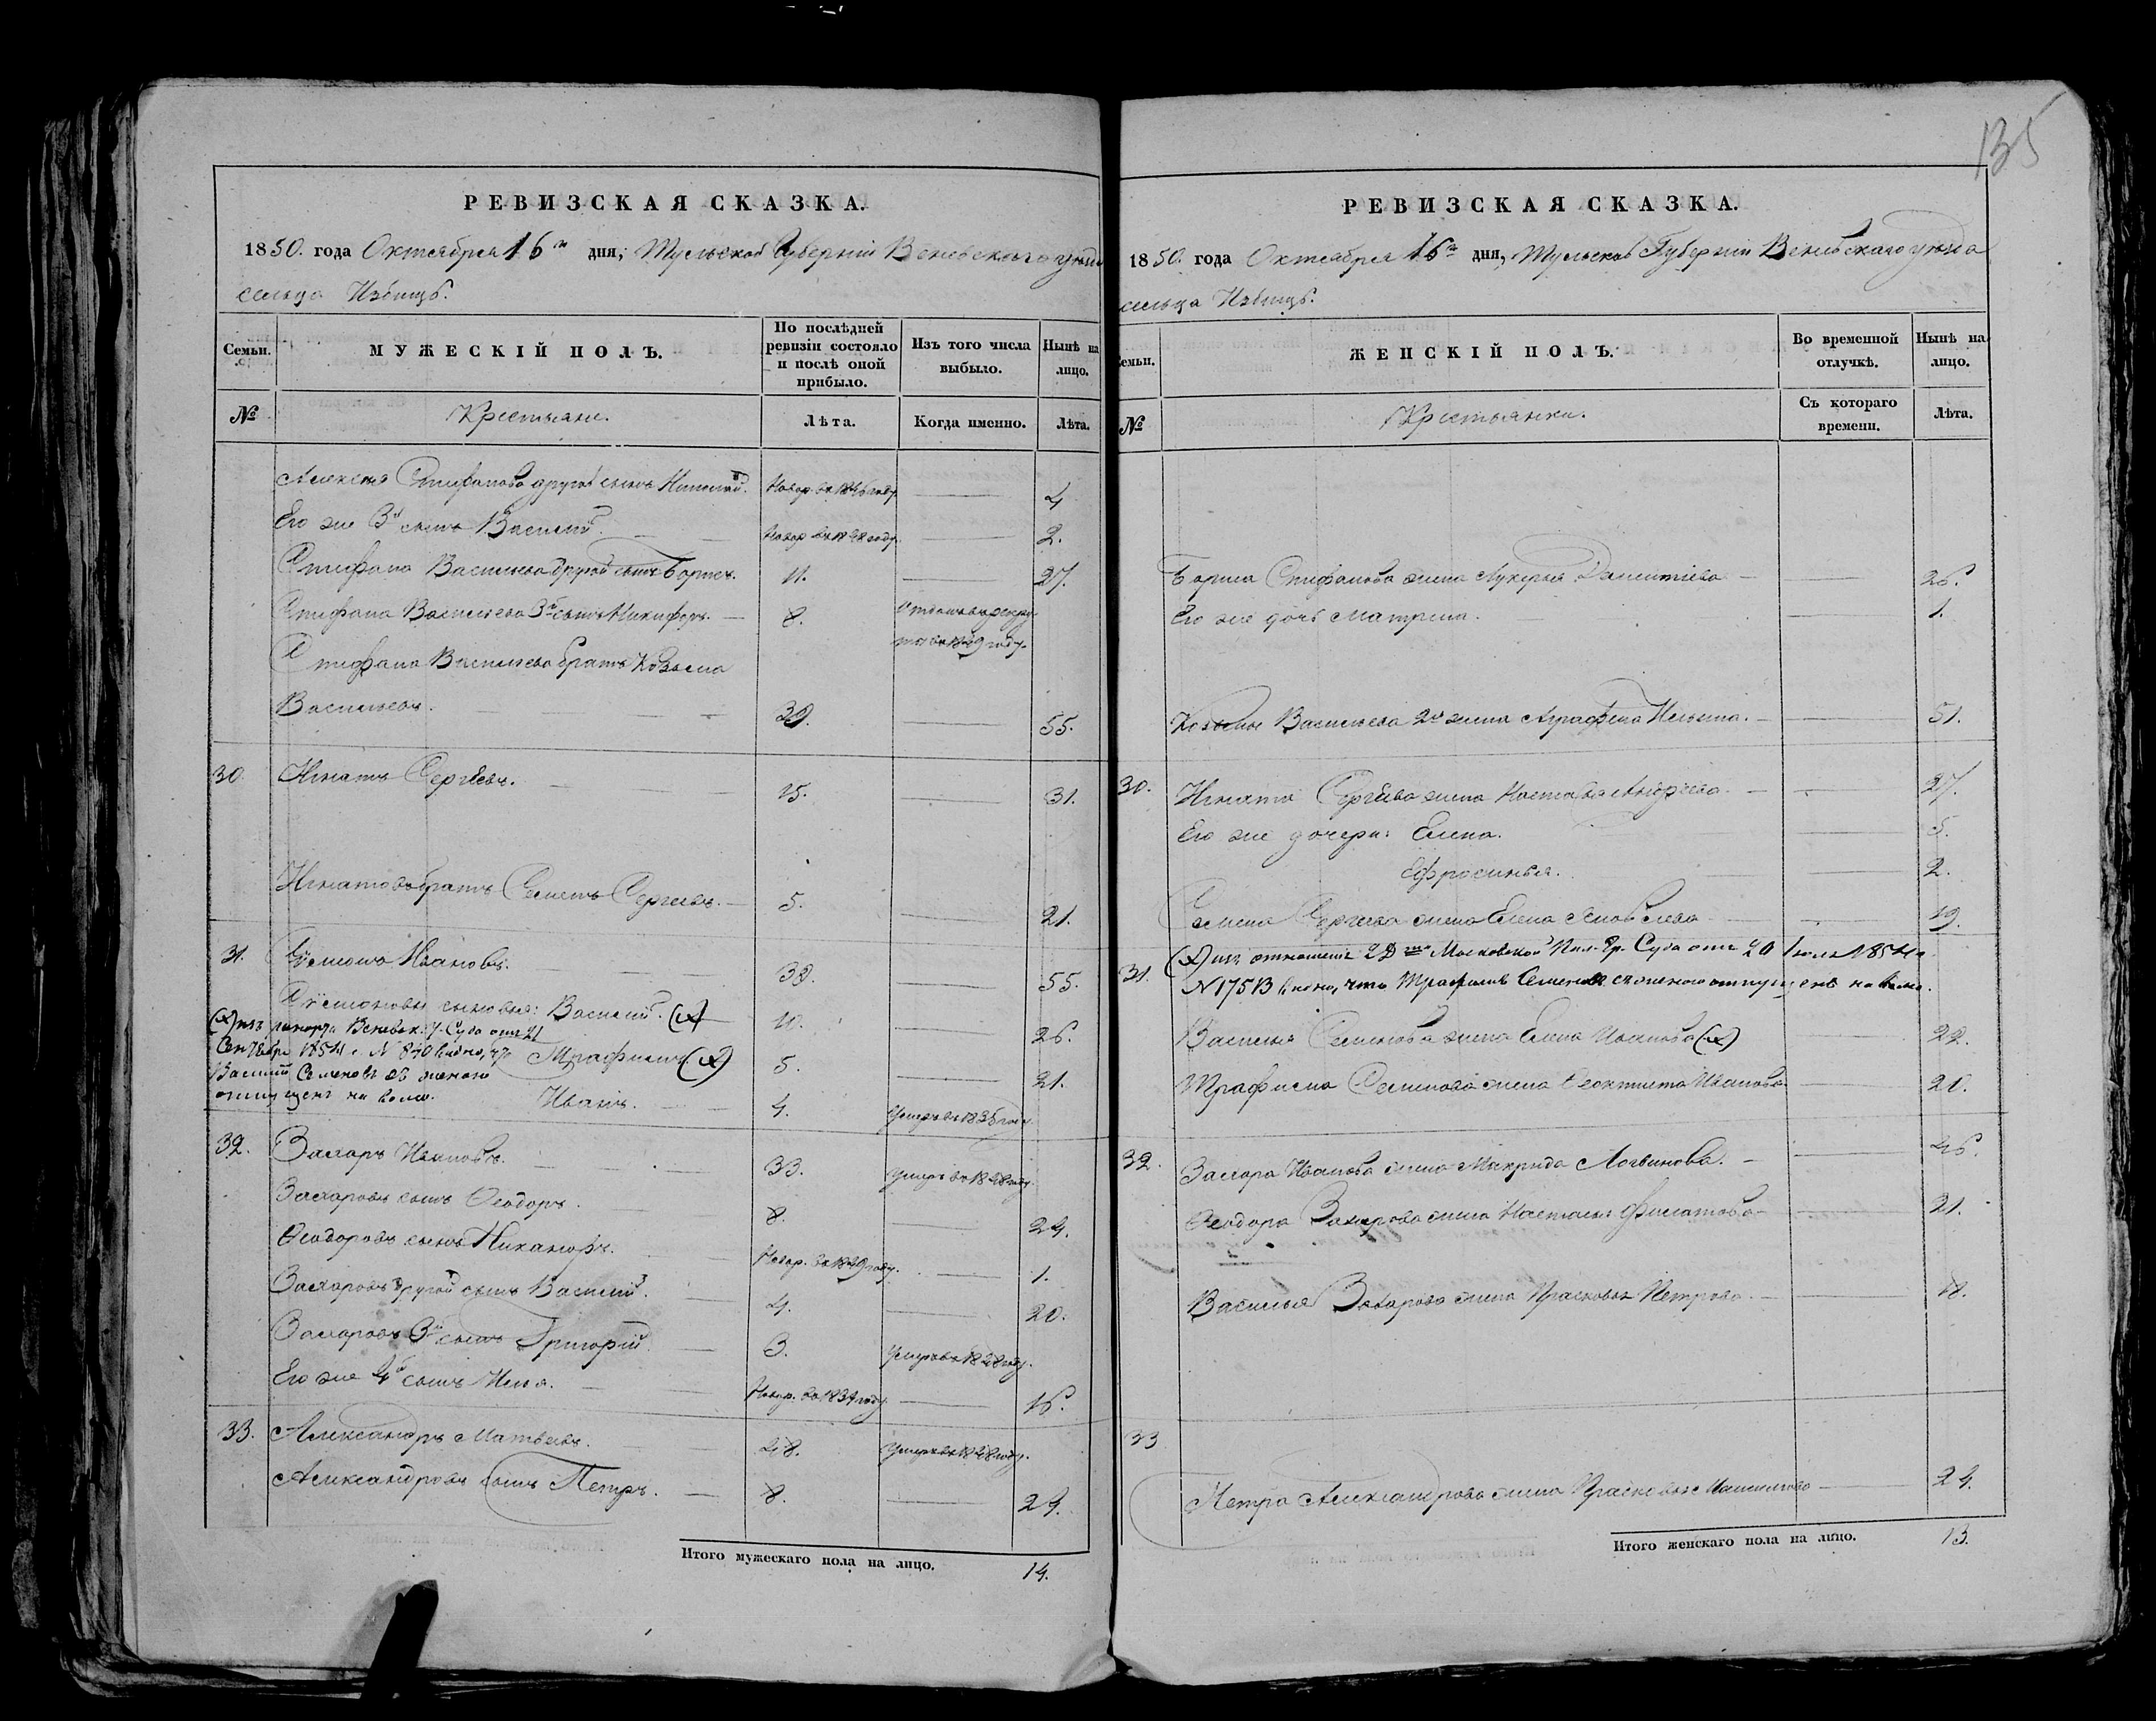 135
РЕВИЗСКАЯ СКАЗКА.
1850. года Октября 16го дня, Тульской Губерніи Веневскаго уезда
сельца Избищъ.
Семьи.
МУЖЕСКІЙ ПОЛЪ.
По послѣдней ревизіи состояло и послѣ оной прибыло.
Изъ того числа выбыло.
Нынѣ на лицо.
№
Крестьяне.
Лѣта.
Когда именно.
Лѣта.
Алексея Стифанова другой сынъ Николай. Новор. въ 1846 году. 4
Его же 3й сынъ Василий. Новор. въ 1848 году. 2.
Стифана Васильева другой сынъ Борисъ. 11. 27.
Стифана Васильева 3й сынъ Никифоръ. 8. Отданъ въ рекру-
ты въ 1849 году.
Стифана Васильева братъ Козьма
Васильевъ. 39. 55.
30. Игнатъ Сергѣевъ. 15. 31.
Игнатовъ братъ Семенъ Сергеевъ. 5. 21.
31. Семионъ Ивановъ. 39. 55.
Семионовы сыновья: Василий. (х) 10. 26.
(х) изъ рапорта Веневск. Суда отъ 21
Сентября 1854 г. N 840 видно, что
Василий Семеновъ съ женою
отпущенъ на волю.
Трафимъ. (х) 5. 21.
Иванъ. 4. Умеръ въ 1835 году.
32. Захаръ Ивановъ. 33. Умеръ въ 1848 году.
Захаровъ сынъ Феодоръ. 8. 24.
Феодоровъ сынъ Никаноръ. Новор. въ 1849 году. 1.
Захаровъ другой сынъ Василий. 4. 20.
Захаровъ 3й сынъ Григорій. 3. Умеръ въ 1848 году.
Его же 4й сынъ Илья. Новор. въ 1834 году. 16.
33. Александръ Матвеевъ. 48. Умеръ въ 1848 году.
Александровъ сынъ Петръ. 8. 24.
Итого мужескаго пола на лицо. 14.
РЕВИЗСКАЯ СКАЗКА.
1850. года Октября 16го дня, Тульской Губерніи Веневскаго уезда
сельца Избищъ.
Семьи.
ЖЕНСКІЙ ПОЛЪ.
Во временной отлучкѣ.
Нынѣ на лицо.
№
Крестьянки.
Съ котораго времени.
Лѣта.
Бориса Стифанова жена Лукерья Дементіева 26.
Его же дочь Матрена. 1.
Козьмы Васильева 2я жена Аграфена Ильина. 51.
30. Игната Сергѣева жена Настасья Андреева. 27.
Его же дочери: Елена. 5.
Ефросинья. 2.
Семена Сергеева жена Елена Яковлева 19.
31. (х) изъ отношенія 2 Д. Московской Пал. Гр. Суда отъ 20 Июля 1854 г.
N 1751 видно, что Трафимъ Семеновъ съ женою отпущенъ на волю.
Василья Семионова жена Елена Иванова (х) 22.
Трафима Семионова жена Феоктиста Иванова 20.
32. Захара Иванова жена Макрида Логвинова. 46.
Феодора Захарова жена Настасья Филатова 21.
Василья Захарова жена Прасковья Петрова. 18.
33
Петра Александрова жена Прасковья 24.
Итого женскаго пола на лицо. 13.